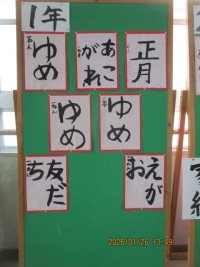 1年
正月
あこ
がれ
ゆめ
ゆめ
ゆめ
えが
お
友だ
ち
2026/01/26 13:49